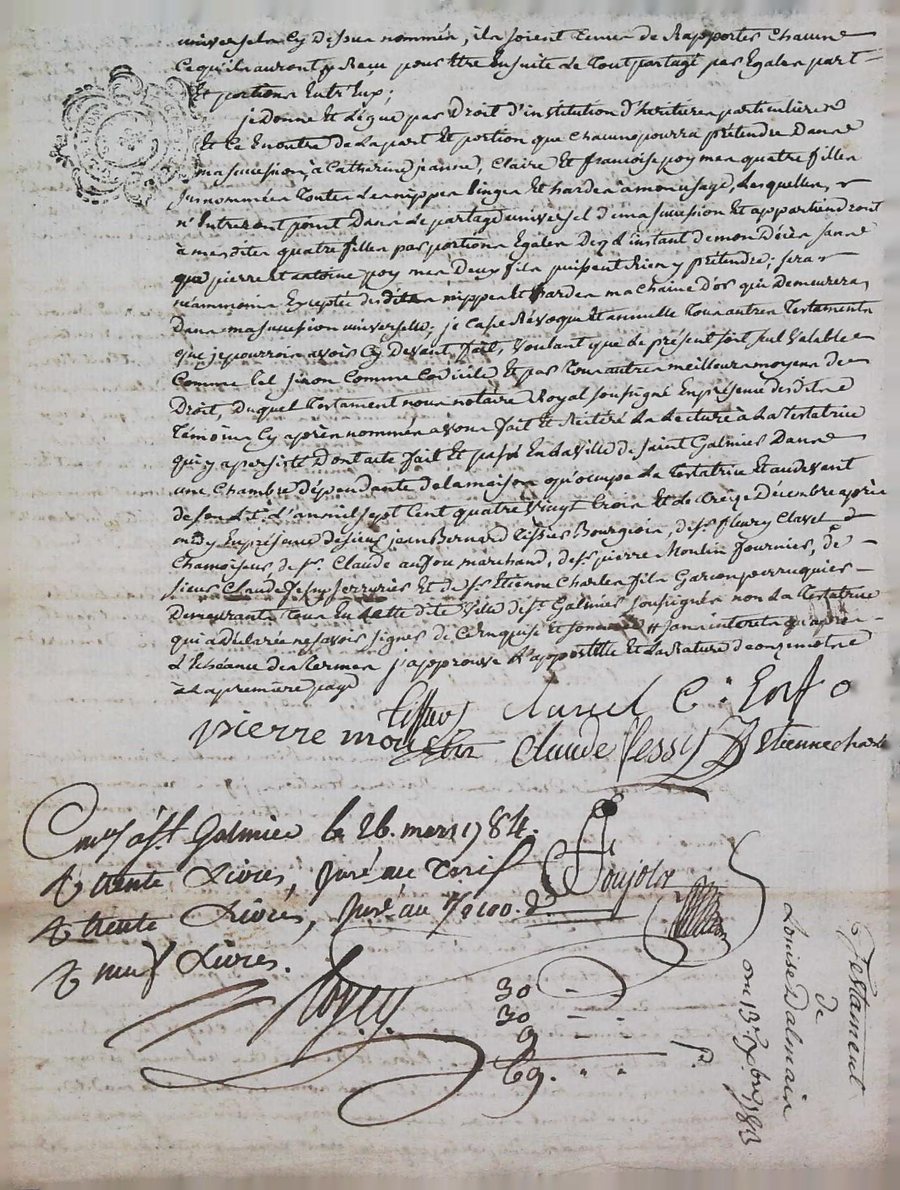 universels Cy Dessus nommés, ils soient tenus de Rapporter chacun
Ce qu'ils auront Recu pour être Ensuite le tout partagé par Egales part
Et portions Entr'Eux;
je donne Et Légue par Droit d'institution d'héritieres particulieres
Et Ce Encontre de La part Et portion que chacune pourra prétendre Dans
ma succession, à Catherine jeanne, Claire Et francoise poy mes quatre filles
surnommées toutes Les nippes linges Et hardes à mon usage, Lesquelles
n'Entreront point Dans Le partage universel de ma succession Et appartiendront
à mes dites quatre filles par portions Egales Dez L'instant de mon Décès sans
que pierre Et antoine poy mes Deux fils puissent Rien y prétendre; sera
néammoins Exceptée desdittes nippes Et hardes ma chaine d'or qui Demeurera
Dans ma succession universelle; je Casse Révoque Et annulle tous autres Testaments
que je pourrois avoir Cy Devant fait, voulant que Le présent soit seul valable
Comme tel sinon Comme Codicile Et par tous autres meilleurs moyens de
Droit, Duquel Testament nous notaire Royal soussigné En présence desdits
témoins Cy après nommés avons fait Et Réitéré La Lecture à La testatrice
qui y a persisté Dont acte fait Et passé En La ville de saint Galmier Dans
une chambre dépendante de la maison qu'occupe La testatrice Et audevant
de son Lit L'an mil sept Cent quatre vingt trois Et Le treize Décembre après
midy En présence de sieur jean Bernard tissier Bourgeois, de sr. fleury Clavel
Chamoiseur de sr. Claude marchand, de sr. pierre Moulin fournier, de
sieur Claude Jessy serrurier Et de sr. Etienne Charles fils Garcon perruquier
Demeurants tous En Cette dite ville de st. Galmier soussignés non La testatrice
qui a déclarée ne savoir signer de Ce requise Et sommée sans interets qu'après
L'Echéance des termes j'approuve L'appostille Et La Rature de onze mots
à La premiere page
Tissier Clavel C:
pierre moulin Claude Jessy Etienne charles
à st Galmier le 26. mars 1784.
R trente Livres, sur le tarif
R trente Livres, 
R neuf Livres.
Poujols
30
30
9
69.
Testament
de
Louise Dalmain
du 13. Xbre 1783